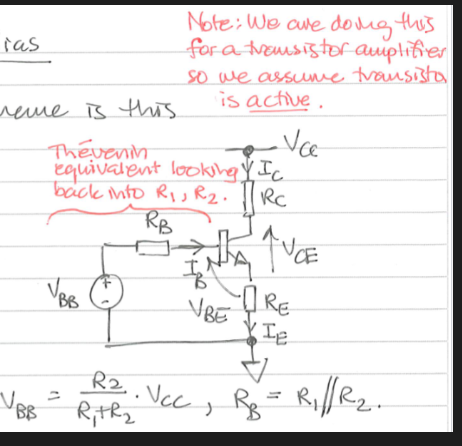 Note: We are doing this
for a transistor amplifier
so we assume transisto
is active.
ias
eme is this
Thévenin
equivalent looking
back into R1, R2.
VCC
IC
RC
RB
IB
VCE
VBB
+
-
VBE
RE
IE
VBB = R2/R1+R2 . VCC , RB = R1//R2.